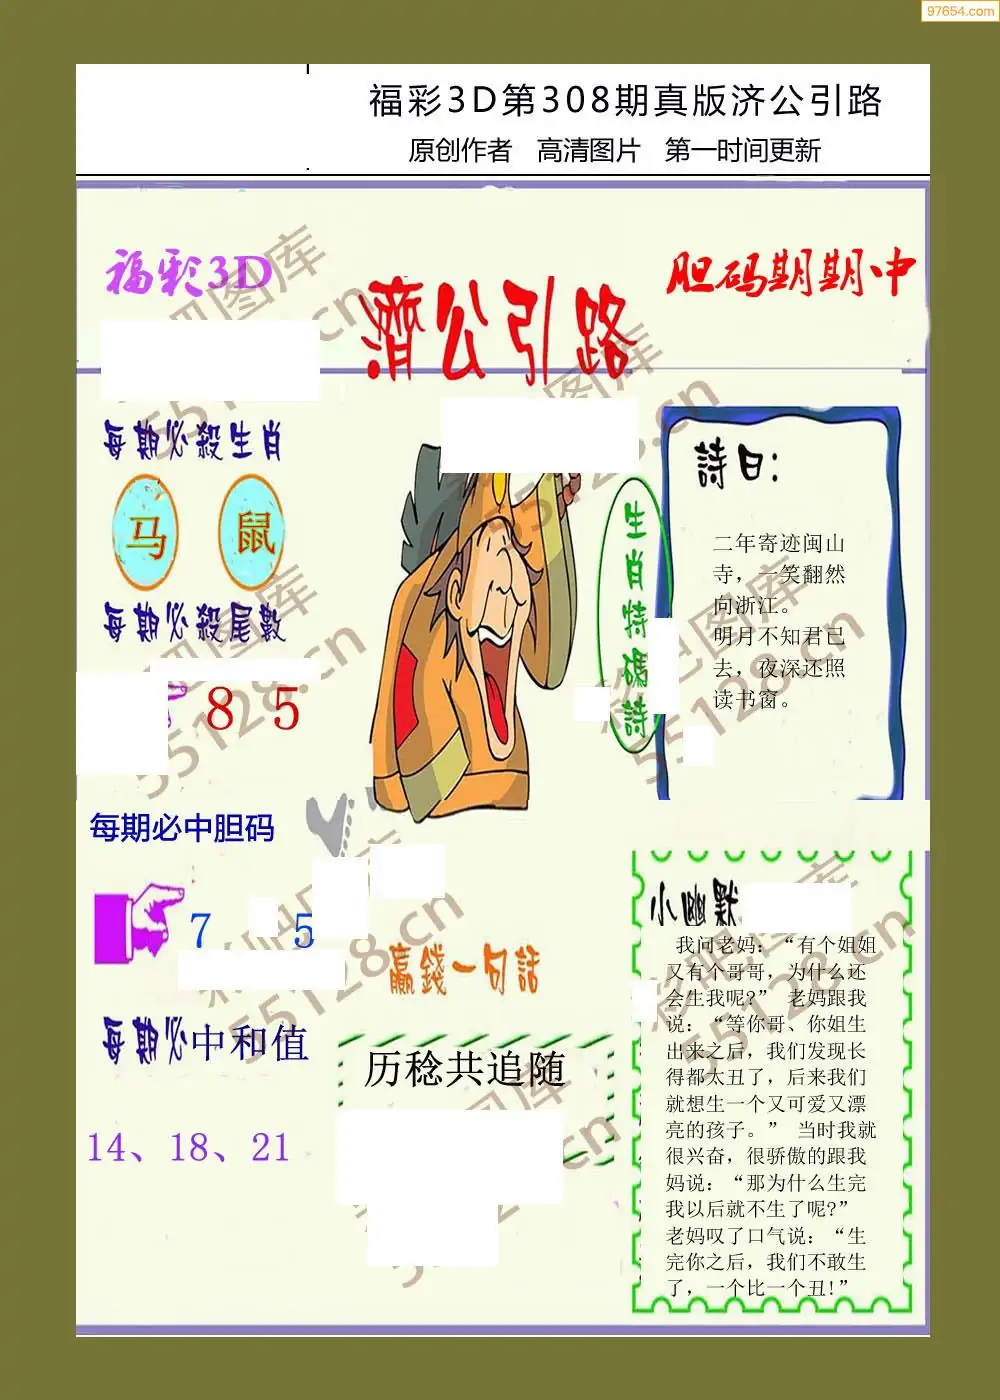 97654.com
福彩3D第308期真版济公引路
原创作者 高清图片 第一时间更新
福彩3D
濟公引路
胆码期期中
每期必殺生肖
马 鼠
每期必殺尾數
8 5
生肖特碼詩
詩曰：
二年寄迹闽山
寺，一笑翻然
向浙江。
明月不知君已
去，夜深还照
读书窗。
每期必中胆码
7 5
每期必中和值
14、18、21
赢錢一句話
历稔共追随
小幽默
我问老妈：“有个姐姐
又有个哥哥，为什么还
会生我呢?” 老妈跟我
说：“等你哥、你姐生
出来之后，我们发现长
得都太丑了，后来我们
就想生一个又可爱又漂
亮的孩子。” 当时我就
很兴奋，很骄傲的跟我
妈说：“那为什么生完
我以后就不生了呢?”
老妈叹了口气说：“生
完你之后，我们不敢生
了，一个比一个丑!”
55128.cn